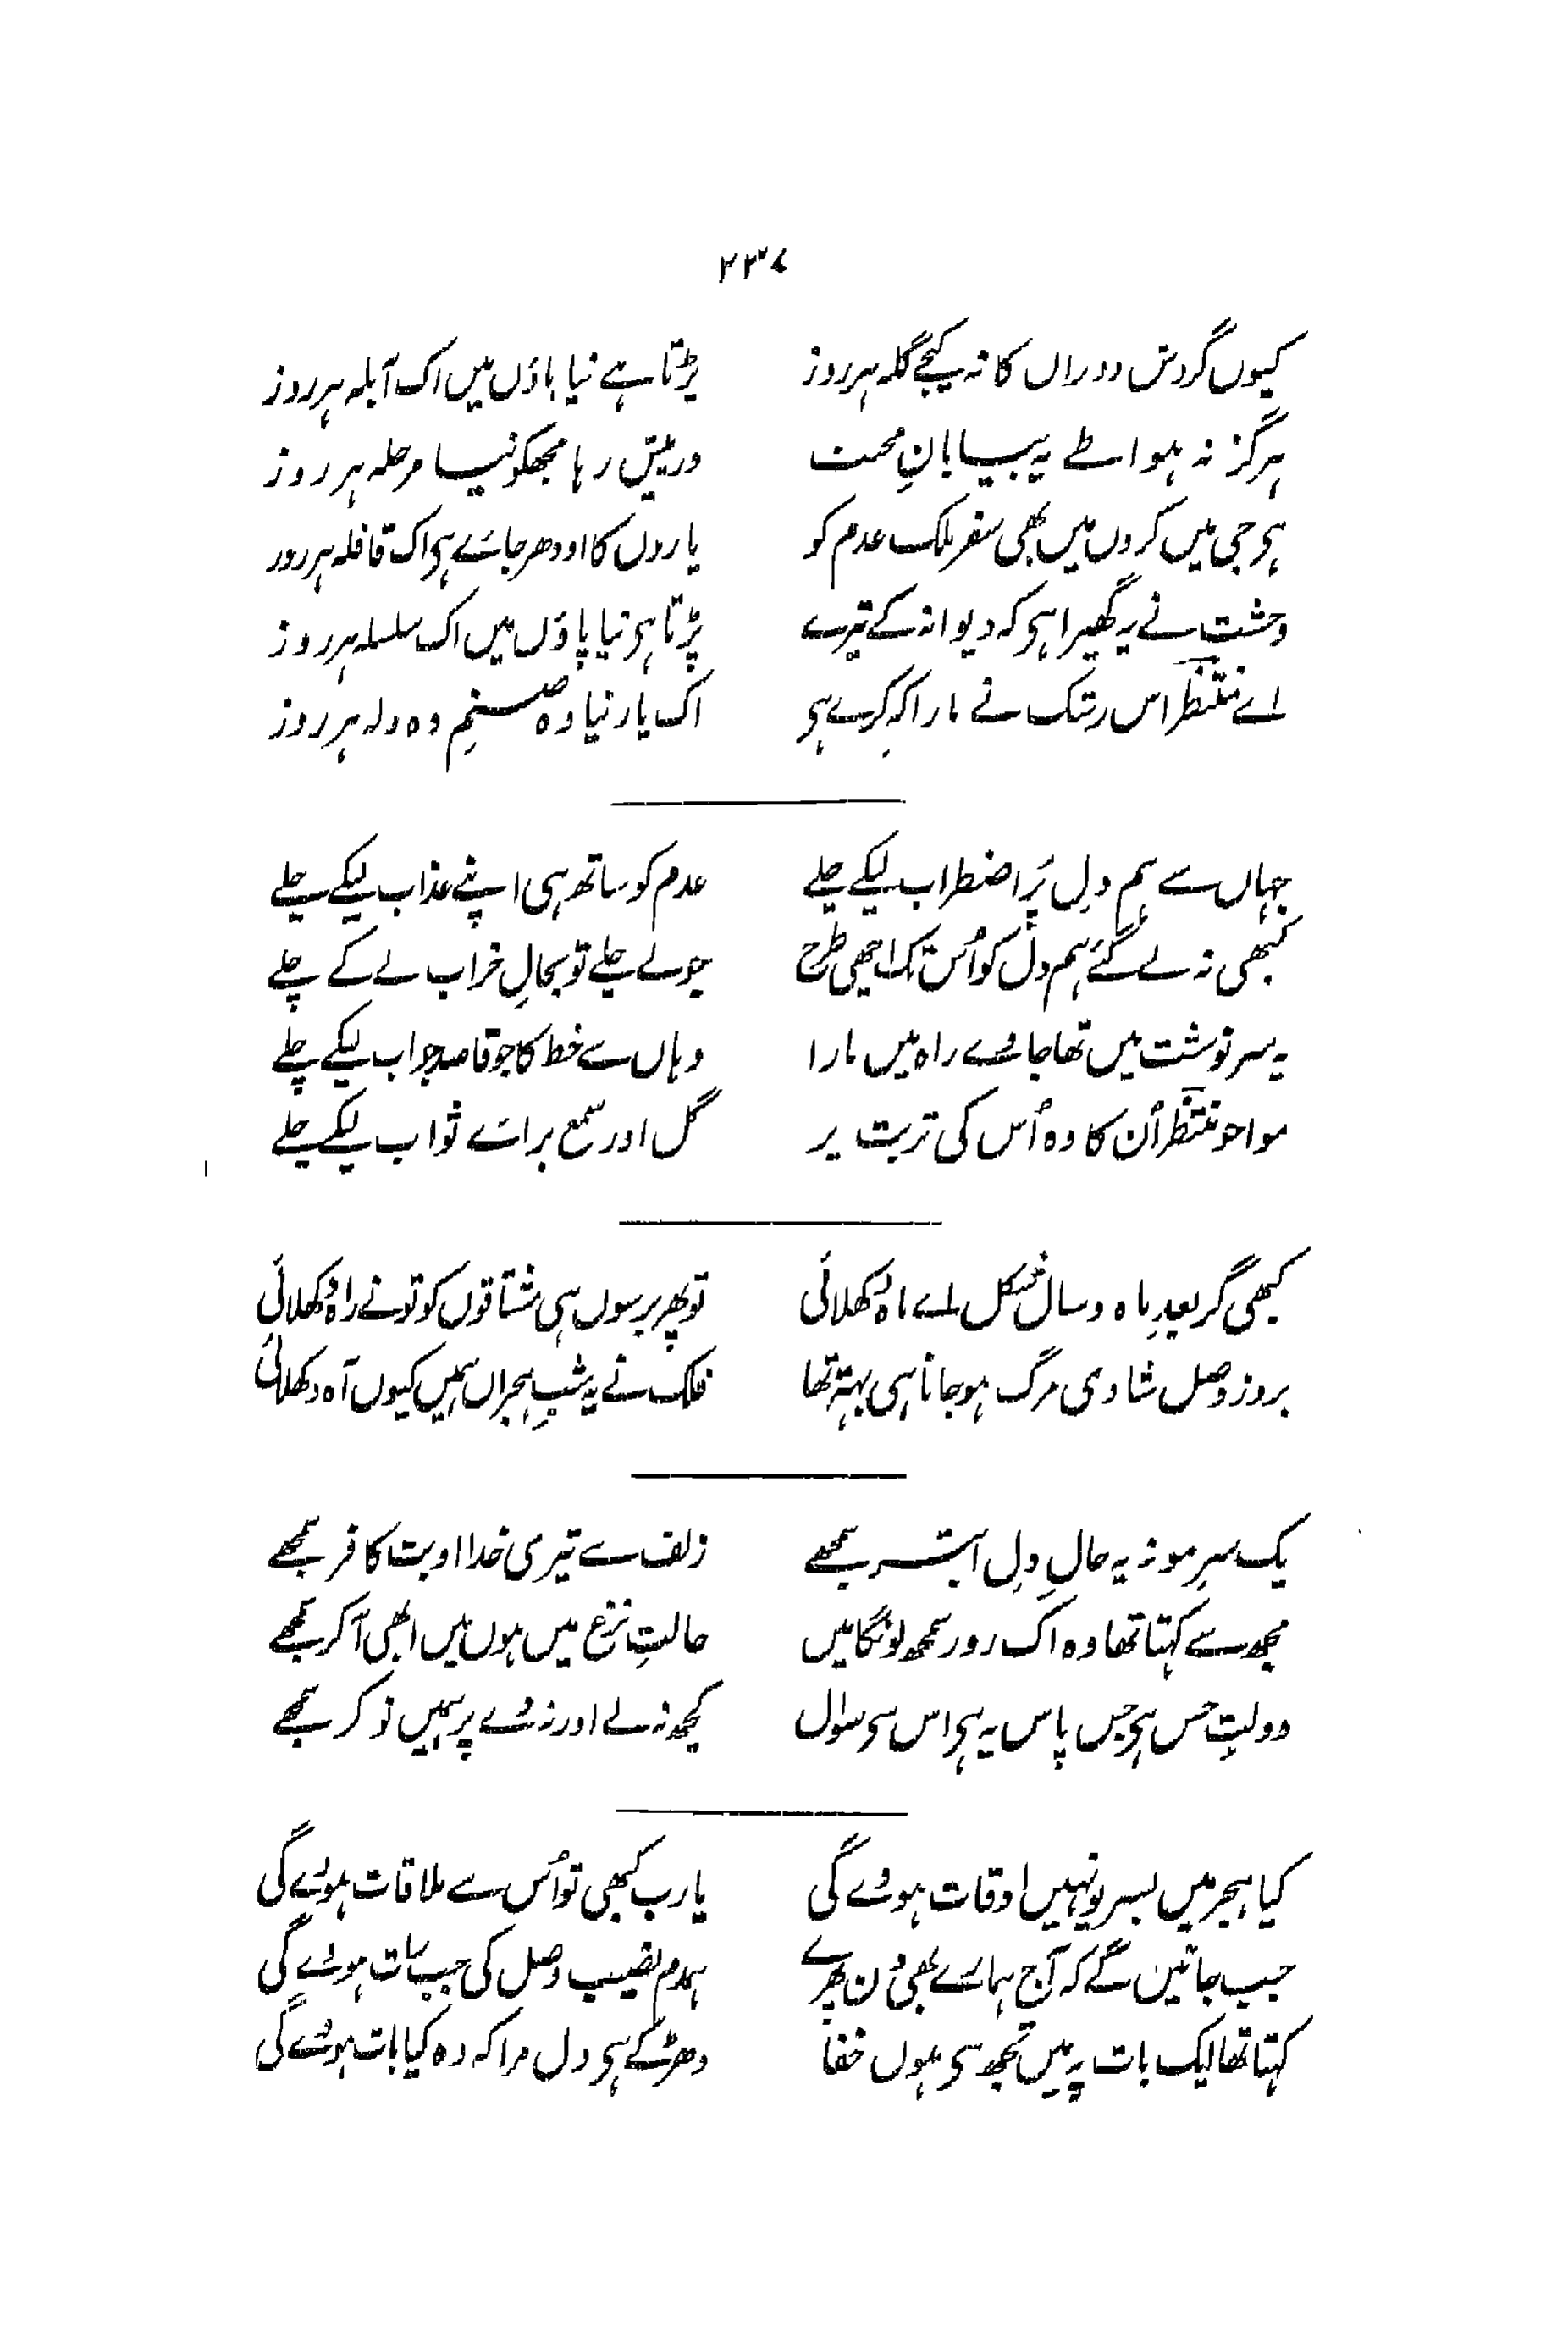 ۲۳۷
کیوں گردش دوراں کا نہ کیجے گلہ ہر روز پڑتا ہے نیا پاؤں میں اک آبلہ ہر روز
ہرگز نہ ہوا طے یہ بیابانِ محبت درپیش رہا مجھکو نیا مرحلہ ہر روز
ہی جی میں کروں میں بھی سفر ملک عدم کو یاروں کا اودھر جائے ہی اک قافلہ ہر روز
وحشت نے یہ گھیرا ہی کہ دیوانہ کے تیرے پڑتا ہی نیا پاؤں میں اک سلسلہ ہر روز
اے منتظر اس رشک نے مارا کہ کرے ہی اک یار نیا وہ صنمِ دہ دلہ ہر روز
جہاں سے ہم دلِ پُر اضطراب لیکے چلے عدم کو ساتھ ہی اپنے عذاب لیکے چلے
کبھی نہ لے گئے ہم دل کو اُس تک اچھی طرح جو لے چلے تو بحالِ خراب لے کے چلے
یہ سر نوشت میں تھا جائے راہ میں مارا وہاں سے خط کا جو قاصد جواب لیکے چلے
موا جو منتظر اُن کا وہ اُس کی تربت پر گل اور شمع برائے ثواب لیکے چلے
کبھی گر بعدِ ماہ و سال شکل اے ماہ دکھلائی تو پھر برسوں ہی مشتاقوں کو تونے راہ دکھلائی
بروز وصل شادی مرگ ہوجانا ہی بہتر تھا فلک نے یہ شبِ ہجراں ہمیں کیوں آہ دکھلائی
یک سرِ مو نہ یہ حالِ دلِ ابتر سمجھے زلف سے تیری خدا او بت کافر سمجھے
مجھ سے کہتا تھا وہ اک روز سمجھ لونگا میں حالتِ نزع میں ہوں میں ابھی آکر سمجھے
دولتِ حسن ہی جس پاس یہ ہی اس سی سوال کچھ نہ لے اور نہ دے پر ہمیں نوکر سمجھے
کیا ہجر میں بسر یونہیں اوقات ہووے گی یارب کبھی تو اُس سے ملاقات ہووے گی
جب جانیں گے کہ آج ہمارے بھی دن پھرے ہمدم نصیب وصل کی جب رات ہووے گی
کہتا تھا لیک بات پہ میں تجھ سی ہوں خفا دھڑکے ہی دل مرا کہ وہ کیا بات ہووے گی